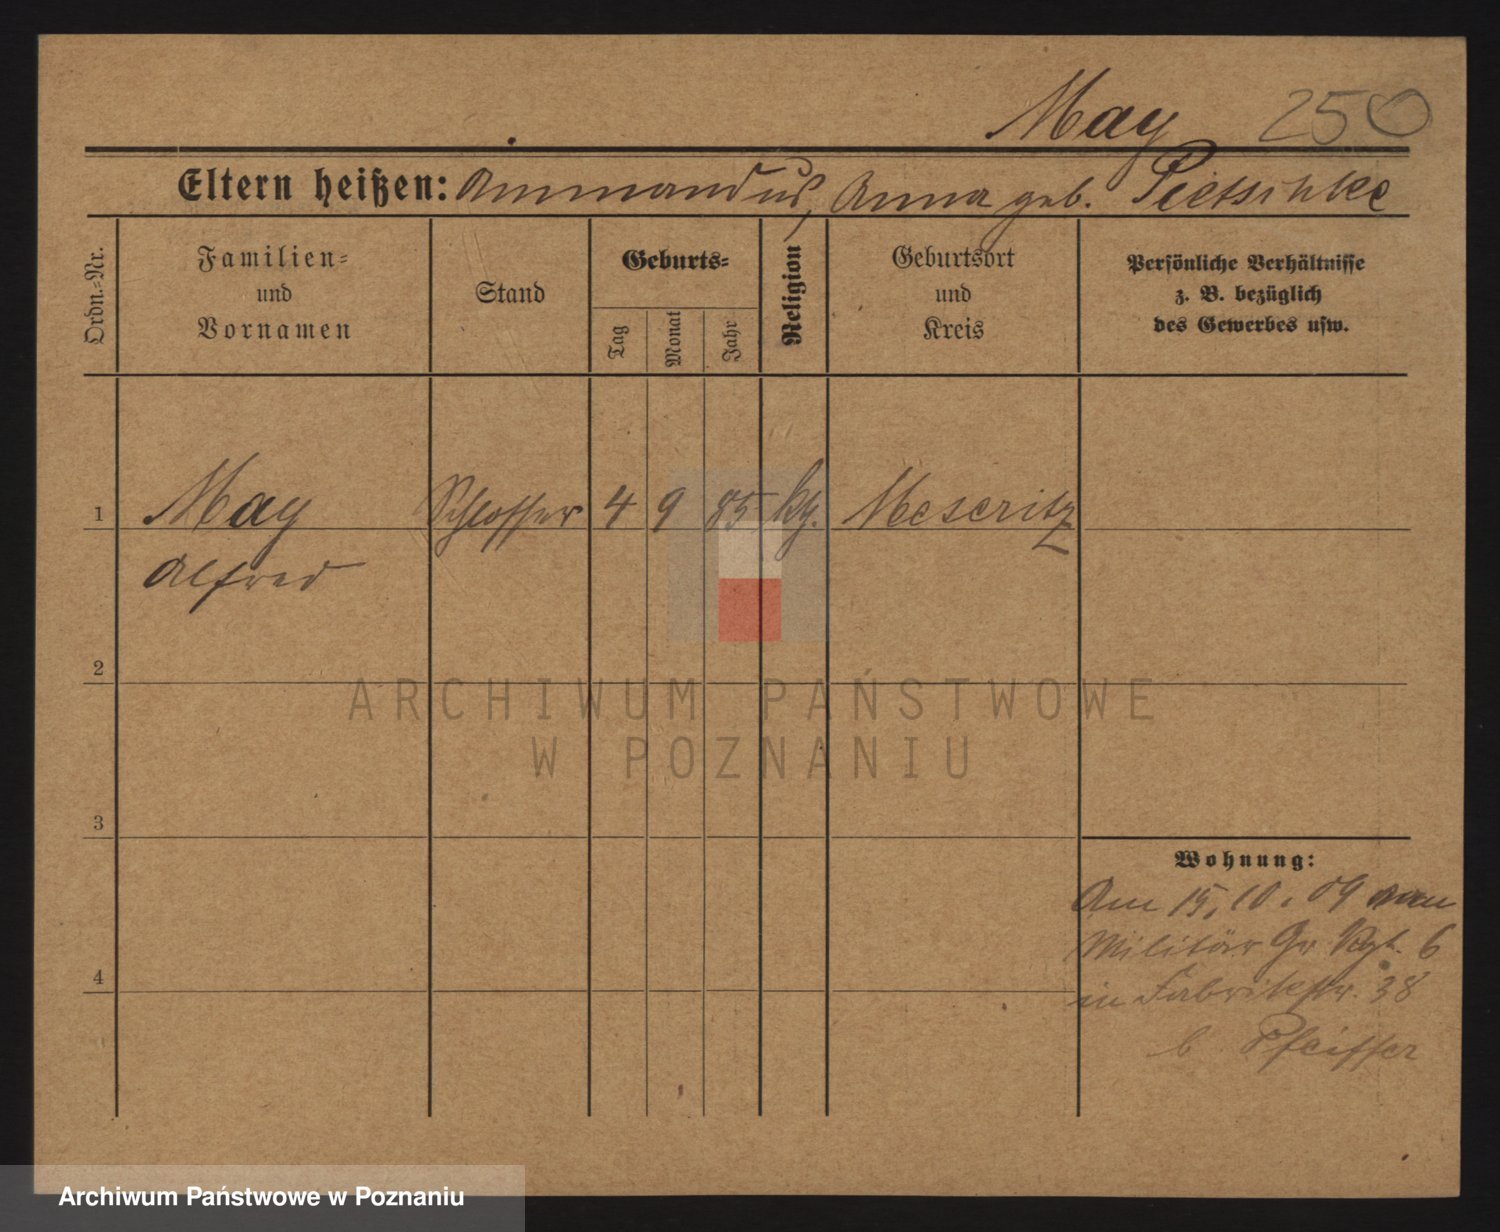 May 250
Eltern heißen: Ammandus, Anna geb. Pietschke
Ordn.-Nr.
Familien-
und
Vornamen
Stand
Geburts-
Tag
Monat
Jahr
Religion
Geburtsort
und
Kreis
Persönliche Verhältnisse
z. B. bezüglich
des Gewerbes usw.
1 May Schlosser 4 9 85 Meseritz
Alfred
2
ARCHIWUM PAŃSTWOWE
W POZNANIU
3
Wohnung:
Am 15.10.09 vom
4
Militär Gr. Rgt. 6
in Fabrikstr. 38
b. Pfeiffer
Archiwum Państwowe w Poznaniu